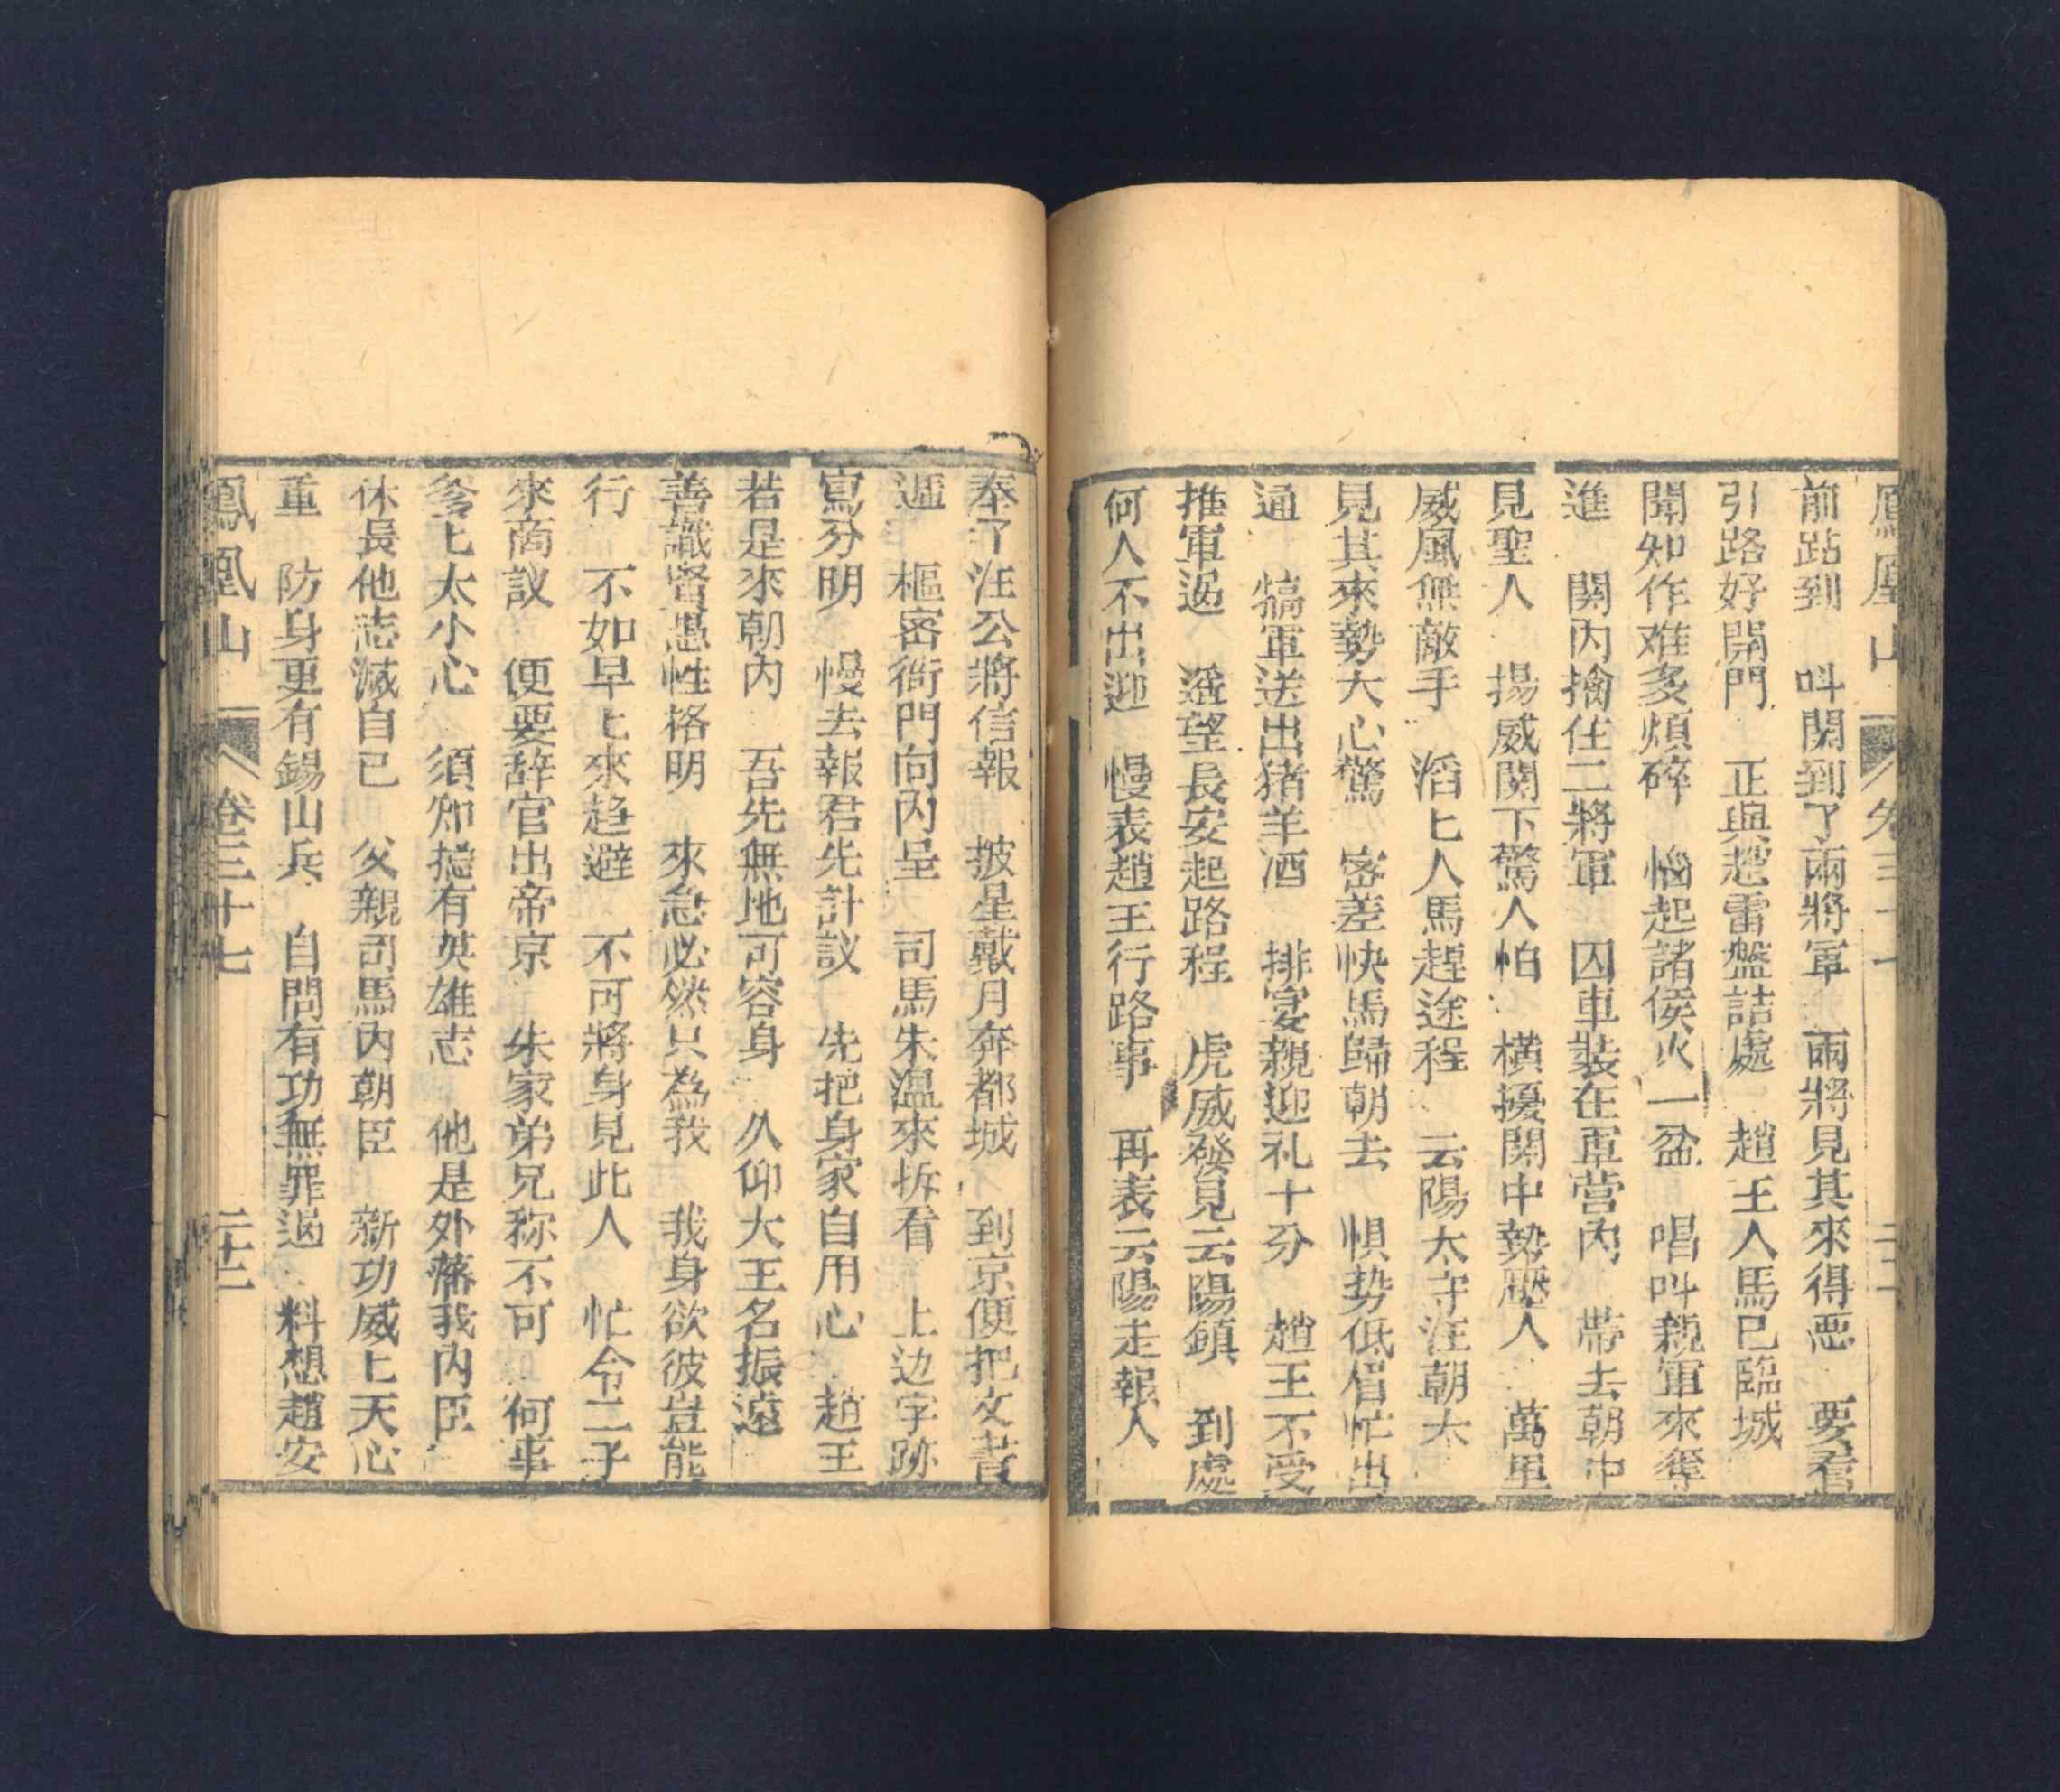 鳳凰山 卷三十七 二十二
前跕到 呌関到了兩將軍 兩將見其來得悪 要看
引路好開門 正與趙雷盤詰處 趙王人馬已臨城
聞知作难多煩碎 惱起諸侯火一盆 唱呌親軍來奪
進 関內擒住二將軍 囚車裝在軍营內 帶去朝中
見聖人 揚威関下驚人怕 橫擾関中勢壓人 萬里
威風無敵手 滔匕人馬趕途程 云陽太守汪朝大
見其來勢大心驚 密差快馬歸朝去 惧势低眉忙出
通 犒軍送出猪羊酒 排宴親迎礼十分 趙王不受
推軍過 遥望長安起路程 虎威發見云陽鎮 到處
何人不出迎 慢表趙王行路事 再表云陽走報人
奉了汪公將信報 披星戴月奔都城 到京便把文書
遞 樞密衙門向內呈 司馬朱溫來拆看 上边字跡
寫分明 慢去報君先計議 先把身家自用心 趙王
若是來朝內 吾先無地可容身 久仰大王名振遠
善識賢愚性格明 來急必然只為我 我身欲彼豈能
行 不如早匕來趋避 不可將身見此人 忙令二子
來商議 便要辞官出帝京 朱家弟兄称不可 何事
爹匕太小心 須知摠有英雄志 他是外藩我內臣
休長他志滅自已 父親司馬內朝臣 新功威匕天心
重 防身更有錫山兵 自問有功無罪過 料想趙安
鳳凰山 卷三十七 二十三